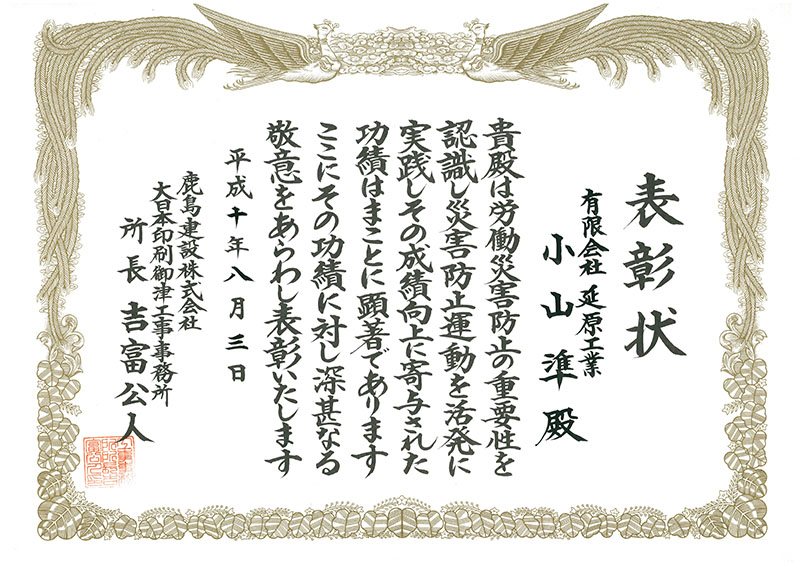 表彰状
有限会社 延原工業
小山準殿
貴殿は労働災害防止の重要性を
認識し災害防止運動を活発に
実践しその成績向上に寄与された
功績はまことに顕著であります
ここにその功績に対し深甚なる
敬意をあらわし表彰いたします
平成十年八月三日
鹿島建設株式会社
大日本印刷御津工事事務所
所長 吉富公人